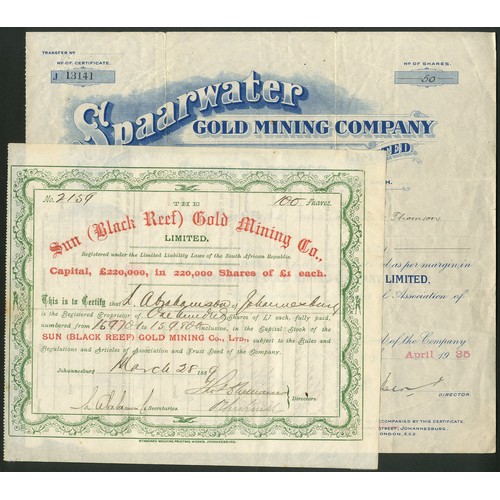 TRANSFER No
No OF CERTIFICATE.
J 13141
No OF SHARES.
50
Spaarwater
GOLD MINING COMPANY
Thomson
d as per margin, in
LIMITED.
Association of
of the Company
April 1935
DIRECTOR
ACCOMPANIED BY THIS CERTIFICATE.
STREET, JOHANNESBURG,
LONDON, E.C.2
No. 2159
THE
100 Shares.
Sun (Black Reef) Gold Mining Co.,
LIMITED.
Registered under the Limited Liability Laws of the South African Republic.
Capital, £220,000, in 220,000 Shares of £1 each.
This is to Certify that Abrahamson of Johannesburg
is the Registered Proprietor of One hundred Shares of £1 each, fully paid,
numbered from to inclusive, in the Capital Stock of the
SUN (BLACK REEF) GOLD MINING CO., LTD., subject to the Rules and
Regulations and Articles of Association and Trust Deed of the Company.
Johannesburg March 28 1889
Secretaries
STANDARD MACHINE PRINTING WORKS, JOHANNESBURG.